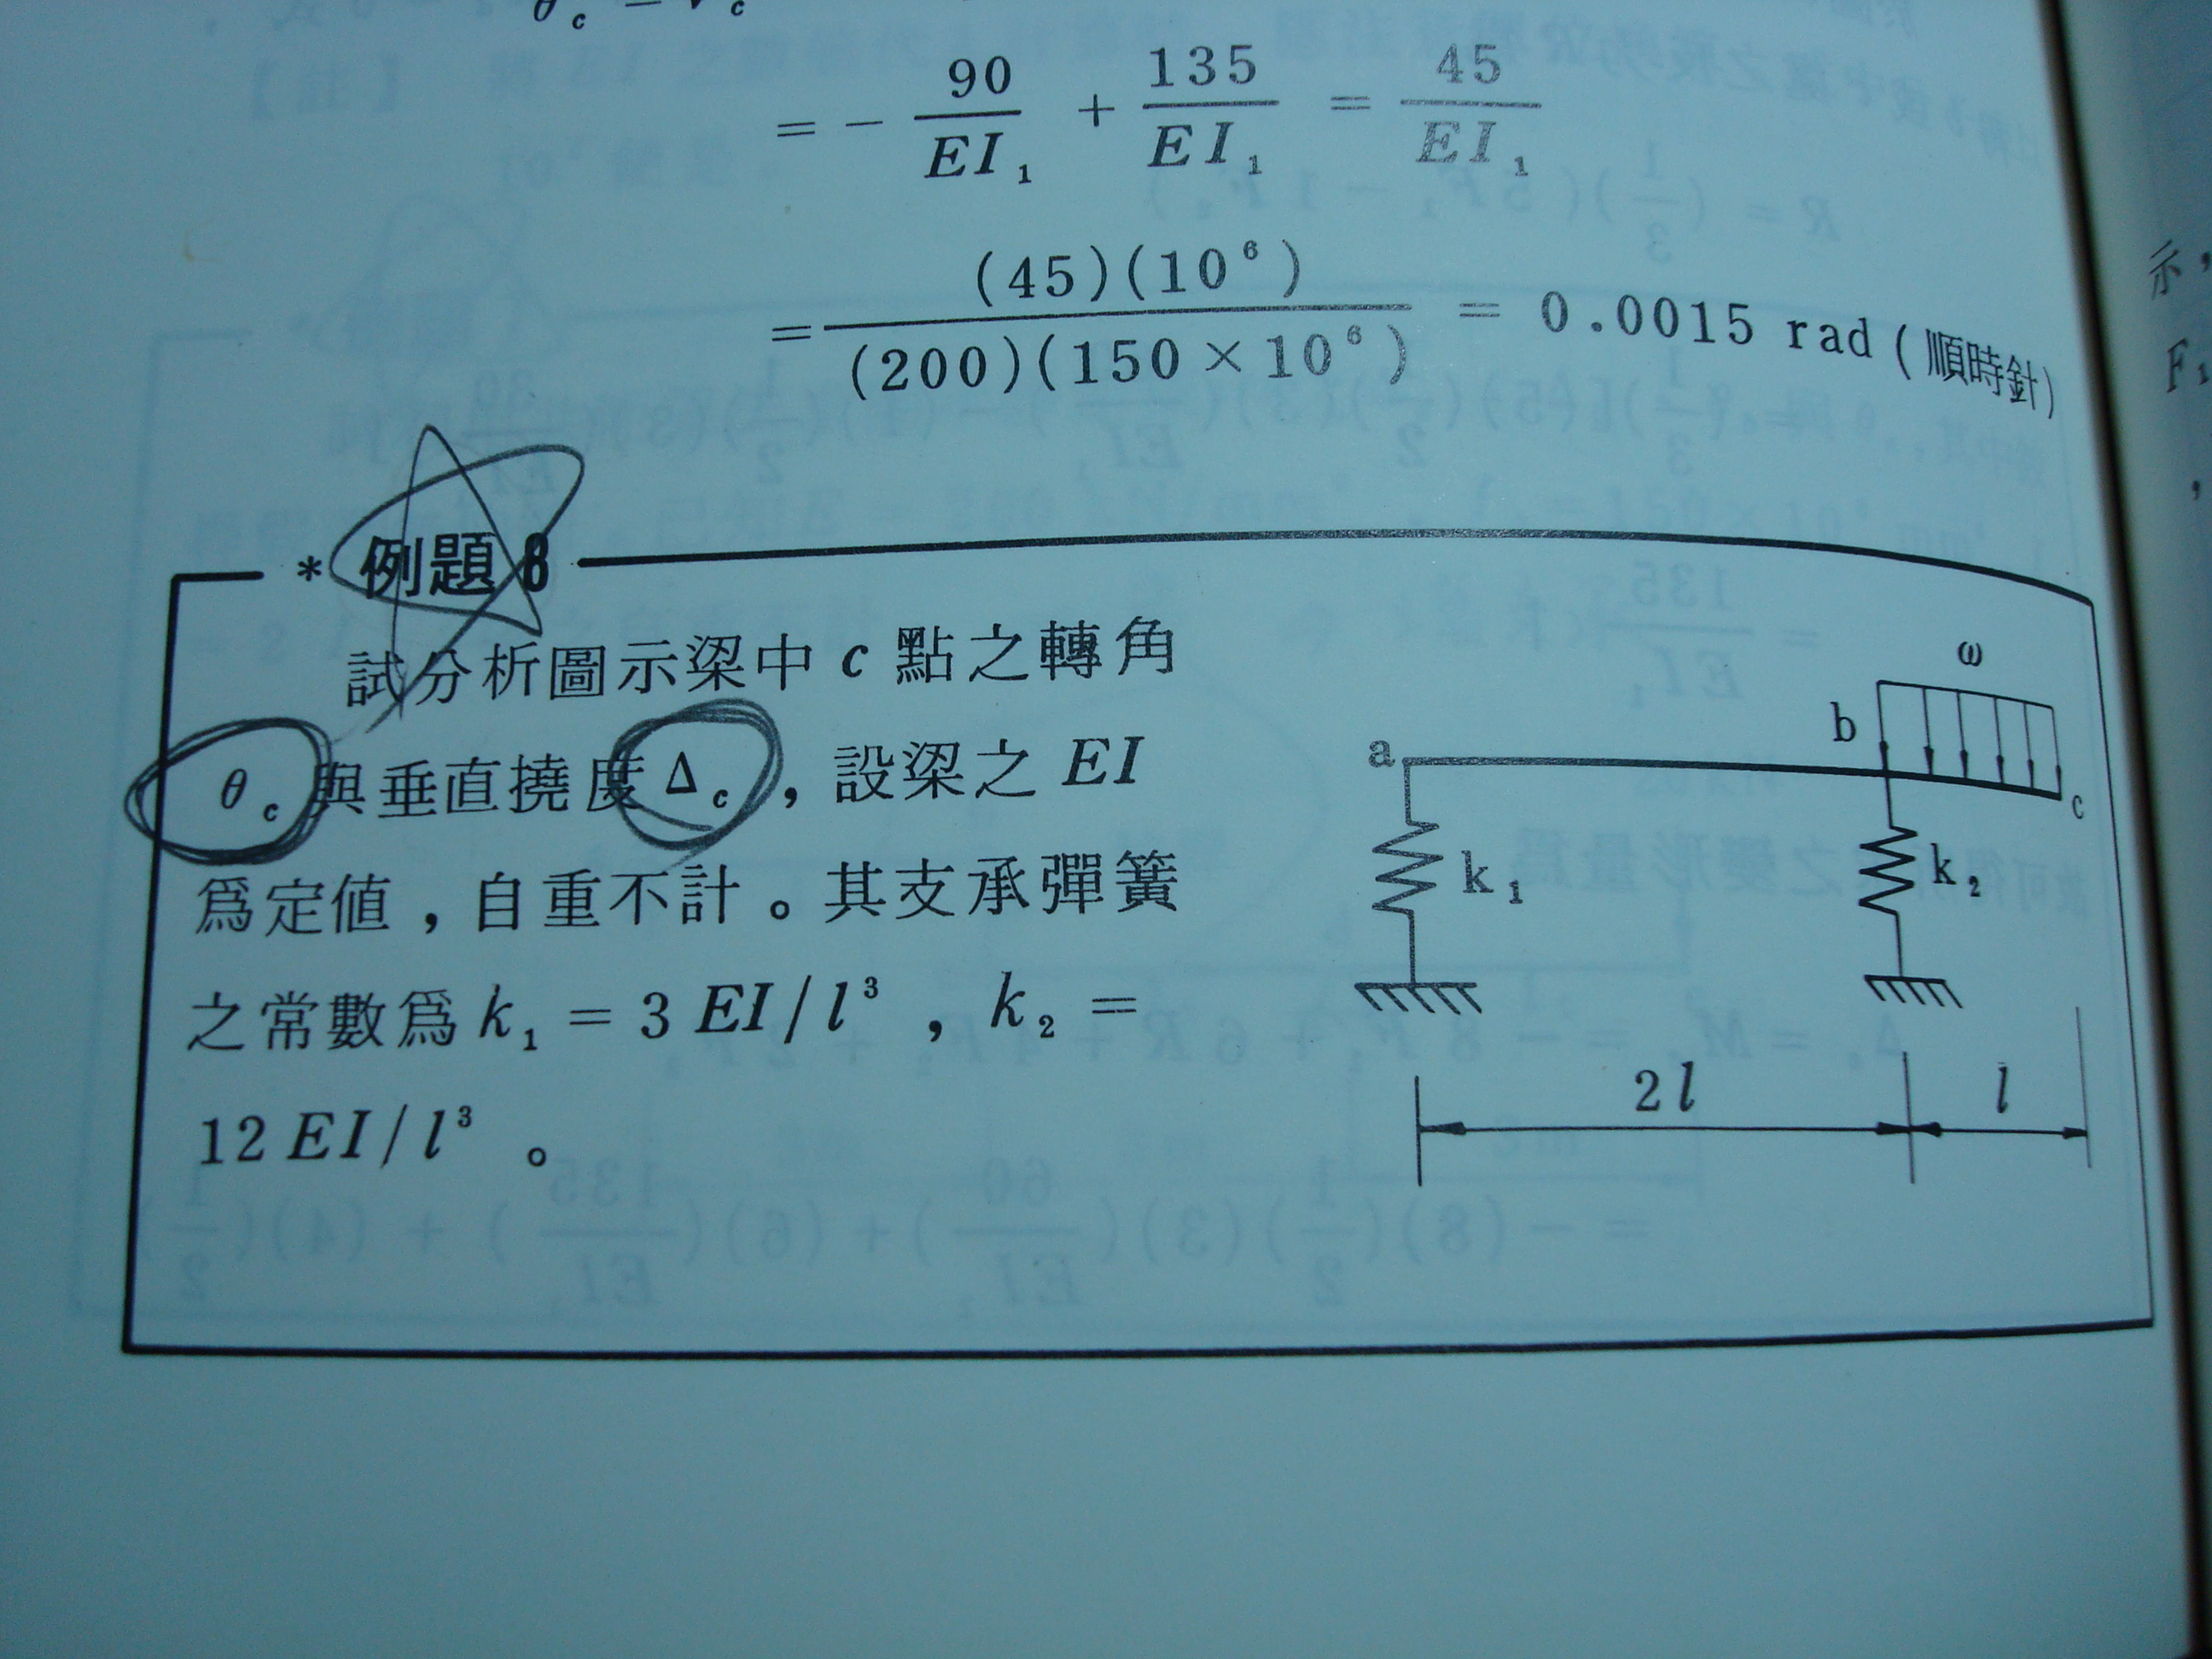 θc = Vc
= − 90/EI₁ + 135/EI₁ = 45/EI₁
= (45)(10⁶)/(200)(150×10⁶) = 0.0015 rad (順時針)
* 例題 8
試分析圖示梁中 c 點之轉角
θc 與垂直撓度 Δc ，設梁之 EI
為定値，自重不計。其支承彈簧
之常數為 k₁ = 3 EI/l³ ， k₂ =
12 EI/l³ 。
ω
b
a
c
k₁
k₂
2l
l
示，
F₁
，